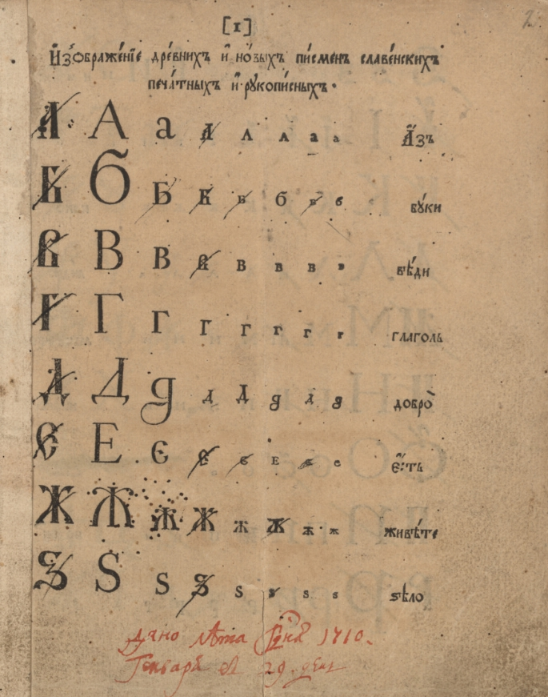 [1]
Изѡбраже́нїе дре́внихъ и҆ но́выхъ пи́сменъ славе́нскихъ
печа́тныхъ и҆ рꙋкопи́сныхъ.
А А а А А А а а А҆́зъ
Б Б Б Б Б Б Б Б бꙋ́ки
В В В В В В В В вѣ́ди
Г Г Г Г Г Г Г Г глаго́ль
Д Д д Д Д д д д добро̀
Е Е Є Е Е Е Е Е є҆́сть
Ж Ж Ж Ж Ж Ж Ж Ж живѣ́те
Ѕ Ѕ Ѕ Ѕ Ѕ Ѕ Ѕ Ѕ ѕѣло̀
дано лѣта 1710.
Генваря 29